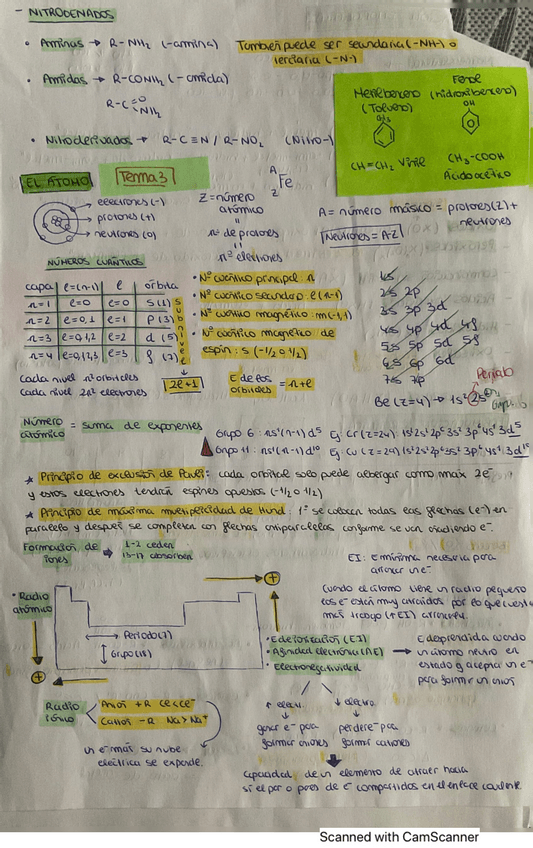 - NITROGENADOS
• Aminas → R-NH₂ (-amina) También puede ser secundaria (-NH-) o
terciaria (-N-)
• Amidas → R-CONH₂ (-amida)
R-C=O
NH₂
• Nitroderivados → R-C≡N / R-NO₂ (Nitro-)
Metilbenceno
(Tolueno)
CH₃
Fenol
(hidroxibenceno)
OH
CH=CH₂ Vinil
CH₃-COOH
Ácido acético
EL ÁTOMO Tema 3
electrones (-)
protones (+)
neutrones (0)
Z = número
atómico
"
nº de protones
"
nº electrones
A
Fe
Z
A = número másico = protones (Z) +
neutrones
Neutrones = A-Z
NÚMEROS CUÁNTICOS
capa l=(n-1) l orbita
n=1 l=0 l=0 s (1)
n=2 l=0,1 l=1 p (3)
n=3 l=0,1,2 l=2 d (5)
n=4 l=0,1,2,3 l=3 f (7)
subnivel
Cada nivel n² orbitales
Cada nivel 2n² electrones
2l+1
• Nº cuántico principal: n
• Nº cuántico secundario: l (n-1)
• Nº cuántico magnético: m (-l, l)
• Nº cuántico magnético de
espín: s (-1/2 o 1/2)
E de los
orbitales = n+l
1s
2s 2p
3s 3p 3d
4s 4p 4d 4f
5s 5p 5d 5f
6s 6p 6d
7s 7p
Periodo
Be (Z=4) → 1s² 2s²
Grupo
Número
atómico = suma de exponentes
Grupo 6: ns¹(n-1)d⁵ Ej Cr (Z=24): 1s² 2s² 2p⁶ 3s² 3p⁶ 4s¹ 3d⁵
Grupo 11: ns¹(n-1)d¹⁰ Ej Cu (Z=24) 1s² 2s² 2p⁶ 3s² 3p⁶ 4s¹ 3d¹⁰
★ Principio de exclusión de Pauli: cada orbital solo puede albergar como max 2e⁻
y estos electrones tendrán espines opuestos (-1/2 o 1/2)
★ Principio de máxima multiplicidad de Hund: 1º se colocan todas las flechas (e⁻) en
paralelo y después se completan con flechas antiparalelas conforme se van añadiendo e⁻.
Formación de
iones → 1-2 ceden
15-17 absorben
EI: E mínima necesaria para
arrancar un e⁻
• Radio
atómico
Periodo (7)
Grupo (18)
+
+
Cuando el átomo tiene un radio pequeño
los e⁻ están muy atraídos por lo que cuesta
más trabajo (↑EI) arrancarlo.
• E de ionización (EI)
• Afinidad electrónica (AE)
• Electronegatividad
→ E desprendida cuando
un átomo neutro en
estado g acepta un e⁻
para formar un anión
Radio
iónico
Anión +R Cl<Cl⁻
Catión -R Na>Na⁺
un e⁻ más su nube
eléctrica se expande.
↑ electr. ↓ electro.
ganar e⁻ para perder e⁻ para
formar aniones formar cationes
Capacidad de un elemento de atraer hacia
sí el par o pares de e⁻ compartidos en el enlace covalente.
Scanned with CamScanner